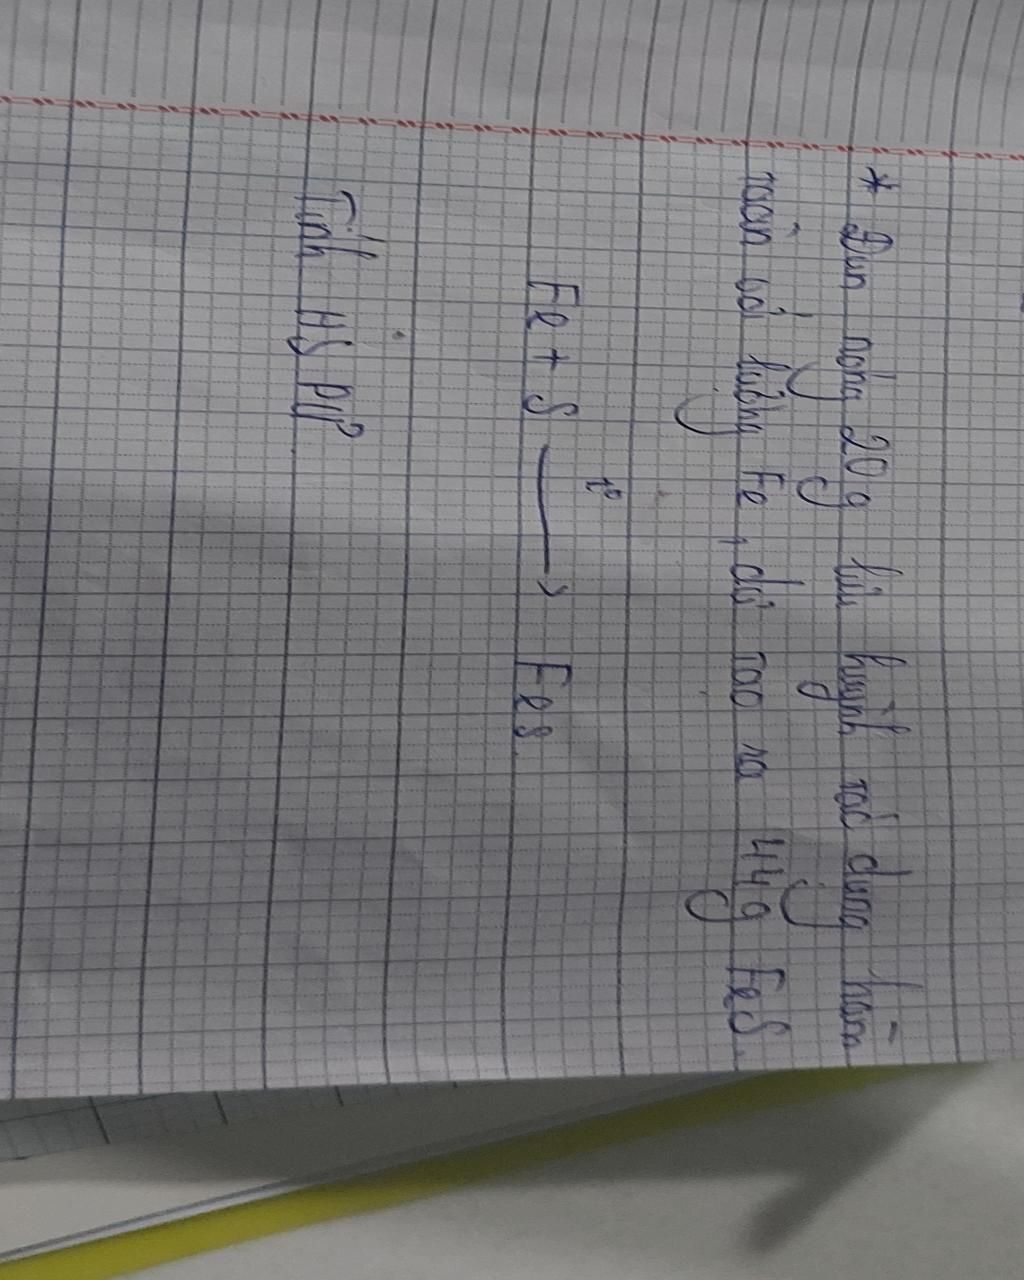 * Đun nóng 20g lưu huỳnh tác dụng hoàn
toàn với lượng Fe, dư tạo ra 44g FeS.
Fe + S —t°→ FeS.
Tính HS pứ?